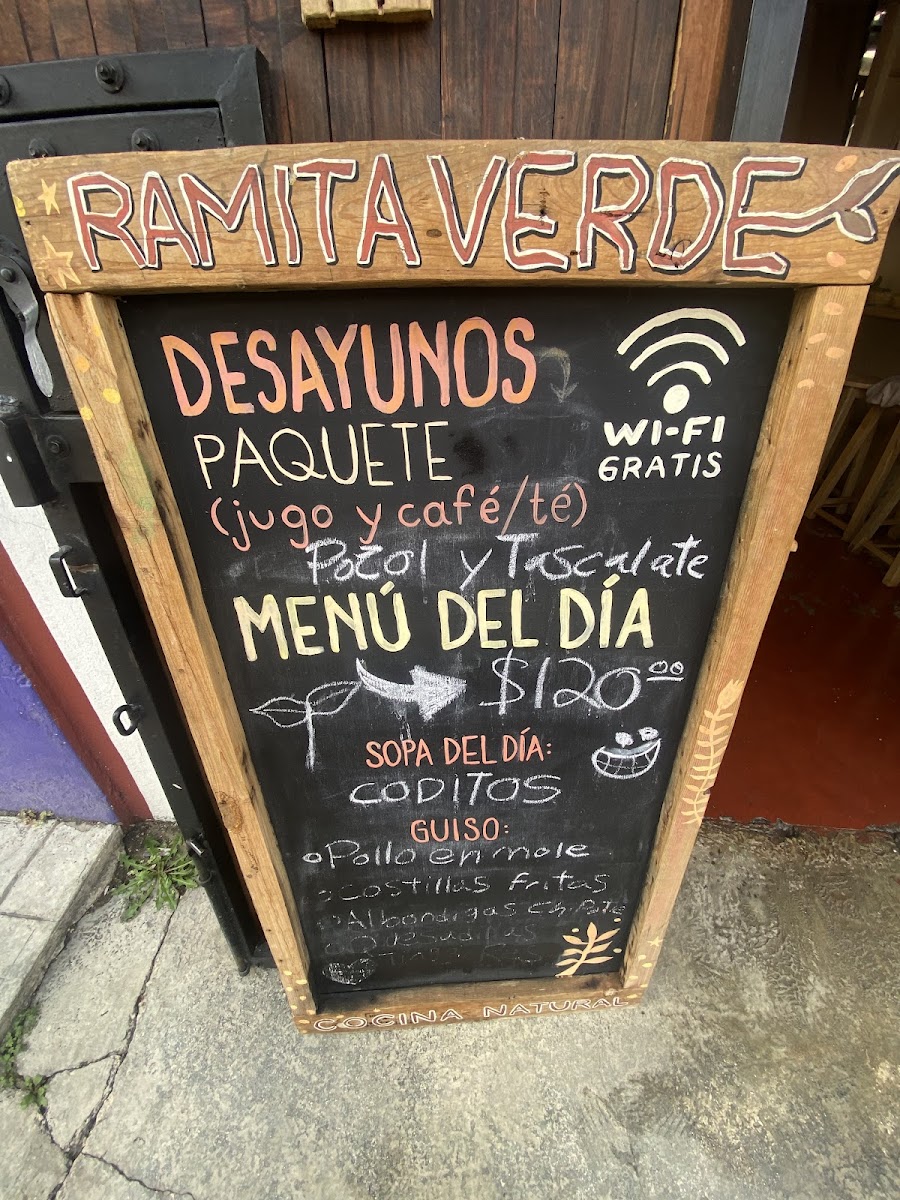 RAMITA VERDE
DESAYUNOS
PAQUETE
WI-FI
GRATIS
(jugo y café/té)
Pozol y Tascalate
MENÚ DEL DÍA
$120.00
SOPA DEL DÍA:
CODITOS
GUISO:
Pollo en mole
costillas fritas
Albondigas
COCINA NATURAL